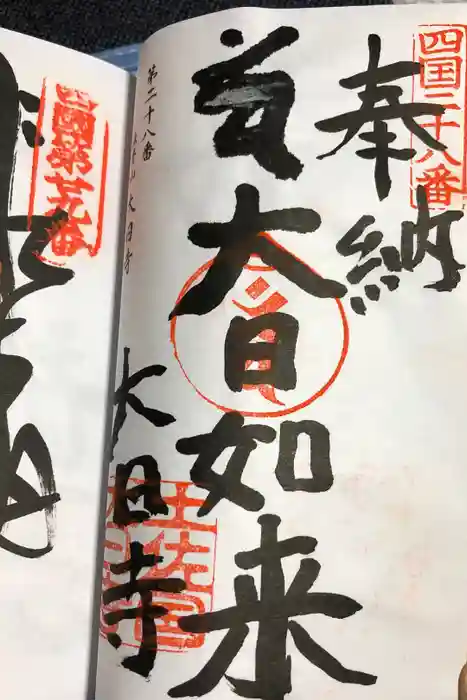 四国二十八番
奉納
大日如来
大日寺
第二十八番
大日寺
土佐国
四國第廿九番